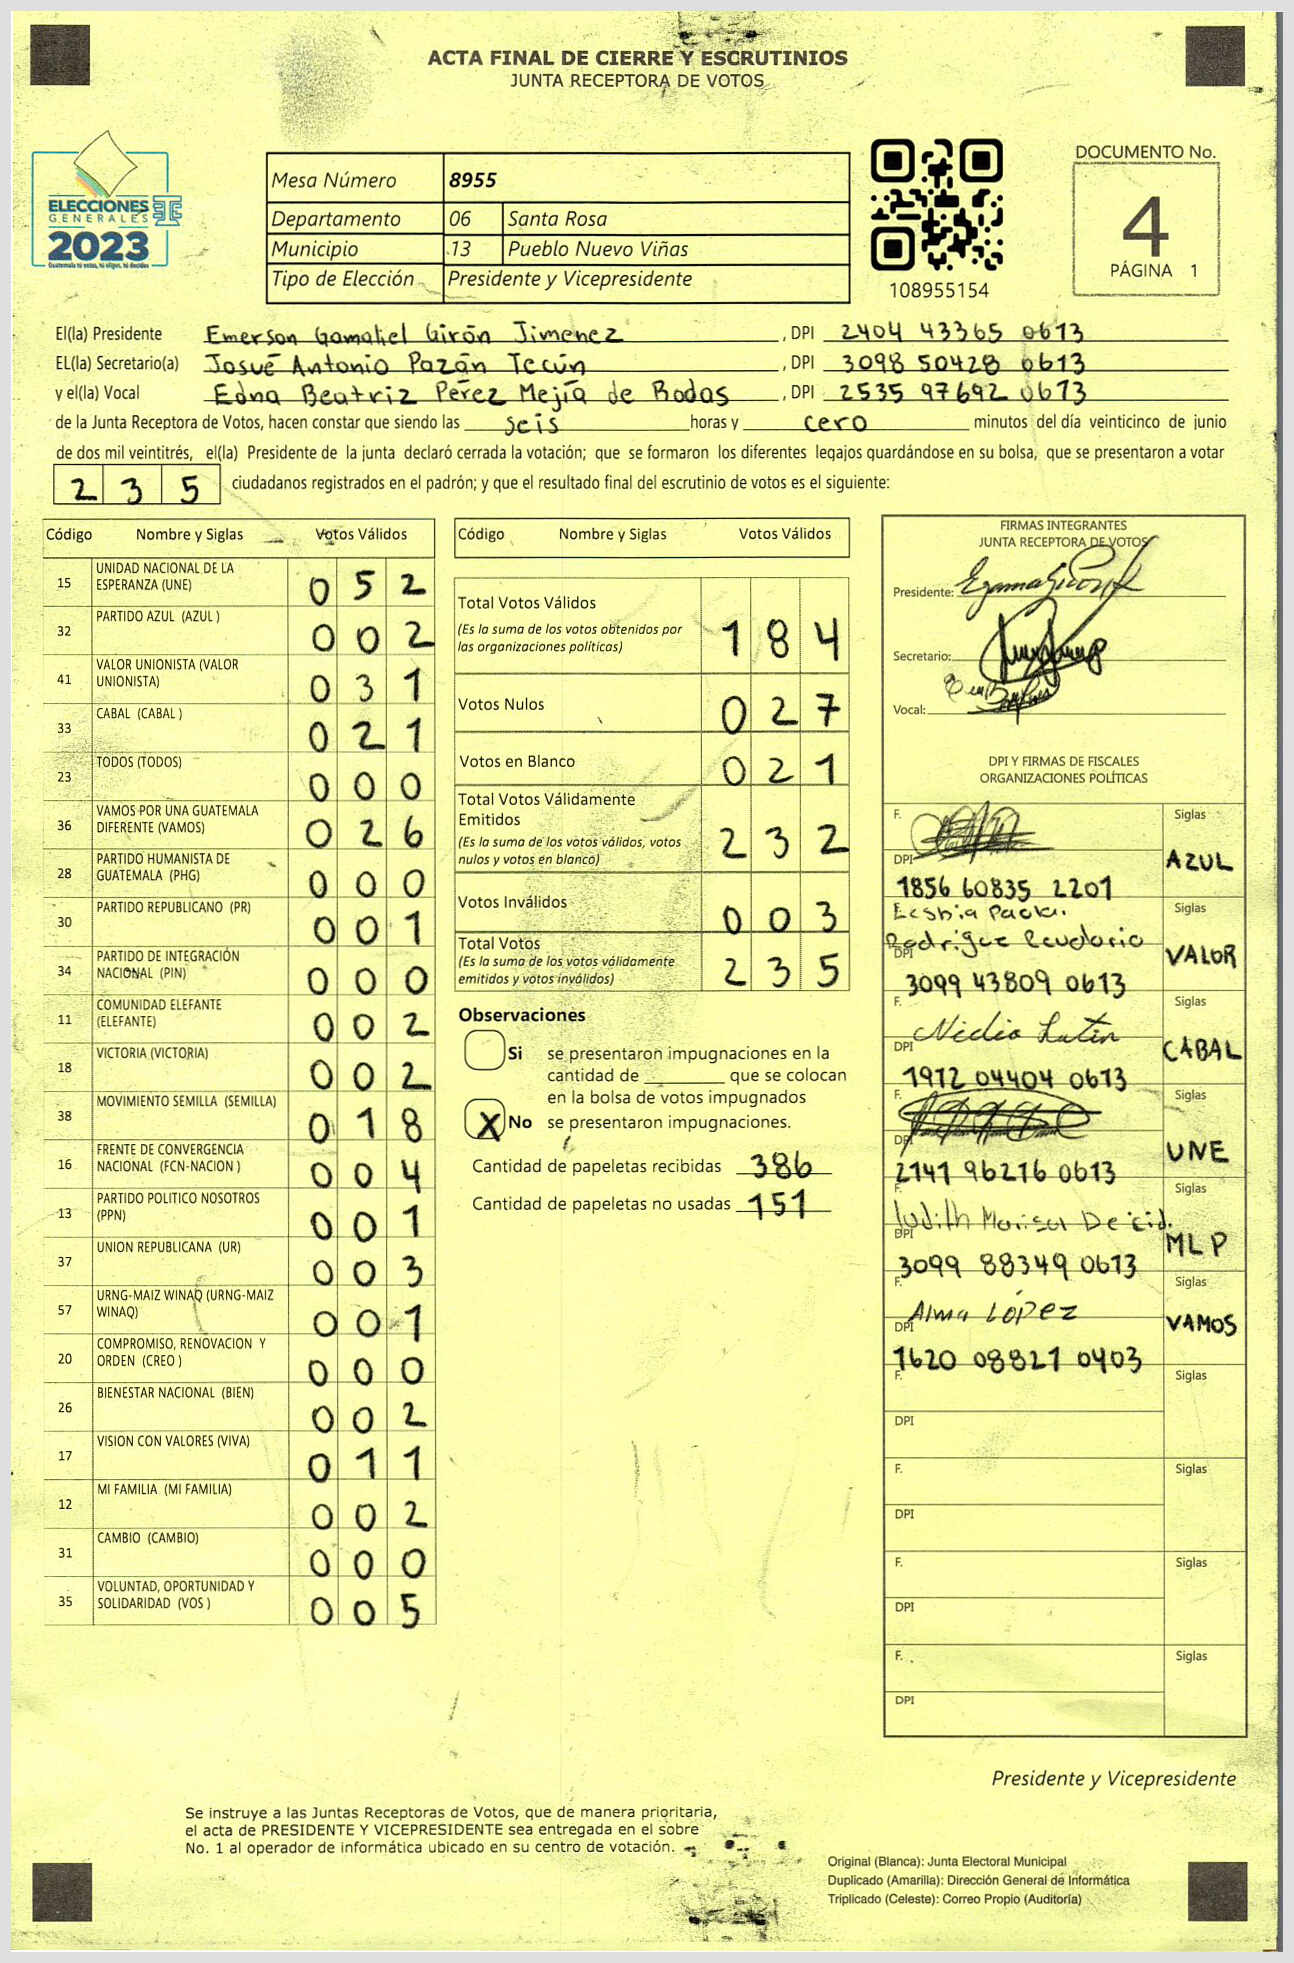 ACTA FINAL DE CIERRE Y ESCRUTINIOS
JUNTA RECEPTORA DE VOTOS
ELECCIONES
GENERALES
2023
Guatemala tú votas, tú eliges, tú decides
Mesa Número 8955
Departamento 06 Santa Rosa
Municipio 13 Pueblo Nuevo Viñas
Tipo de Elección Presidente y Vicepresidente
108955154
DOCUMENTO No.
4
PÁGINA 1
El(la) Presidente Emerson Gamaliel Girón Jimenez, DPI 2404 43365 0613
EL(la) Secretario(a) Josué Antonio Pazán Tecún, DPI 3098 50428 0613
y el(la) Vocal Edna Beatriz Pérez Mejía de Rodas, DPI 2535 97692 0613
de la Junta Receptora de Votos, hacen constar que siendo las seis horas y cero minutos del día veinticinco de junio
de dos mil veintitrés, el(la) Presidente de la junta declaró cerrada la votación; que se formaron los diferentes legajos guardándose en su bolsa, que se presentaron a votar
2 3 5 ciudadanos registrados en el padrón; y que el resultado final del escrutinio de votos es el siguiente:
Código Nombre y Siglas Votos Válidos
15 UNIDAD NACIONAL DE LA ESPERANZA (UNE) 0 5 2
32 PARTIDO AZUL (AZUL ) 0 0 2
41 VALOR UNIONISTA (VALOR UNIONISTA) 0 3 1
33 CABAL (CABAL ) 0 2 1
23 TODOS (TODOS) 0 0 0
36 VAMOS POR UNA GUATEMALA DIFERENTE (VAMOS) 0 2 6
28 PARTIDO HUMANISTA DE GUATEMALA (PHG) 0 0 0
30 PARTIDO REPUBLICANO (PR) 0 0 1
34 PARTIDO DE INTEGRACIÓN NACIONAL (PIN) 0 0 0
11 COMUNIDAD ELEFANTE (ELEFANTE) 0 0 2
18 VICTORIA (VICTORIA) 0 0 2
38 MOVIMIENTO SEMILLA (SEMILLA) 0 1 8
16 FRENTE DE CONVERGENCIA NACIONAL (FCN-NACION ) 0 0 4
13 PARTIDO POLITICO NOSOTROS (PPN) 0 0 1
37 UNION REPUBLICANA (UR) 0 0 3
57 URNG-MAIZ WINAQ (URNG-MAIZ WINAQ) 0 0 1
20 COMPROMISO, RENOVACION Y ORDEN (CREO ) 0 0 0
26 BIENESTAR NACIONAL (BIEN) 0 0 2
17 VISION CON VALORES (VIVA) 0 1 1
12 MI FAMILIA (MI FAMILIA) 0 0 2
31 CAMBIO (CAMBIO) 0 0 0
35 VOLUNTAD, OPORTUNIDAD Y SOLIDARIDAD (VOS ) 0 0 5
Código Nombre y Siglas Votos Válidos
Total Votos Válidos 1 8 4
(Es la suma de los votos obtenidos por
las organizaciones políticas)
Votos Nulos 0 2 7
Votos en Blanco 0 2 1
Total Votos Válidamente
Emitidos 2 3 2
(Es la suma de los votos válidos, votos
nulos y votos en blanco)
Votos Inválidos 0 0 3
Total Votos 2 3 5
(Es la suma de los votos válidamente
emitidos y votos inválidos)
Observaciones
Si se presentaron impugnaciones en la
cantidad de ________ que se colocan
en la bolsa de votos impugnados
X No se presentaron impugnaciones.
Cantidad de papeletas recibidas 386
Cantidad de papeletas no usadas 151
FIRMAS INTEGRANTES
JUNTA RECEPTORA DE VOTOS
Presidente:
Secretario:
Vocal:
DPI Y FIRMAS DE FISCALES
ORGANIZACIONES POLÍTICAS
F. Siglas
DPI AZUL
1856 60835 2201
F. Siglas
DPI VALOR
3099 43809 0613
F. Siglas
DPI CABAL
1912 04404 0613
F. Siglas
DPI UNE
2141 96216 0613
F. Judith Siglas
DPI MLP
3099 88349 0613
F. Alma LÓPez Siglas
DPI VAMOS
1620 08821 0403
F. Siglas
DPI
F. Siglas
DPI
F. Siglas
DPI
F. Siglas
DPI
Presidente y Vicepresidente
Se instruye a las Juntas Receptoras de Votos, que de manera prioritaria,
el acta de PRESIDENTE Y VICEPRESIDENTE sea entregada en el sobre
No. 1 al operador de informática ubicado en su centro de votación.
Original (Blanca): Junta Electoral Municipal
Duplicado (Amarilla): Dirección General de Informática
Triplicado (Celeste): Correo Propio (Auditoría)